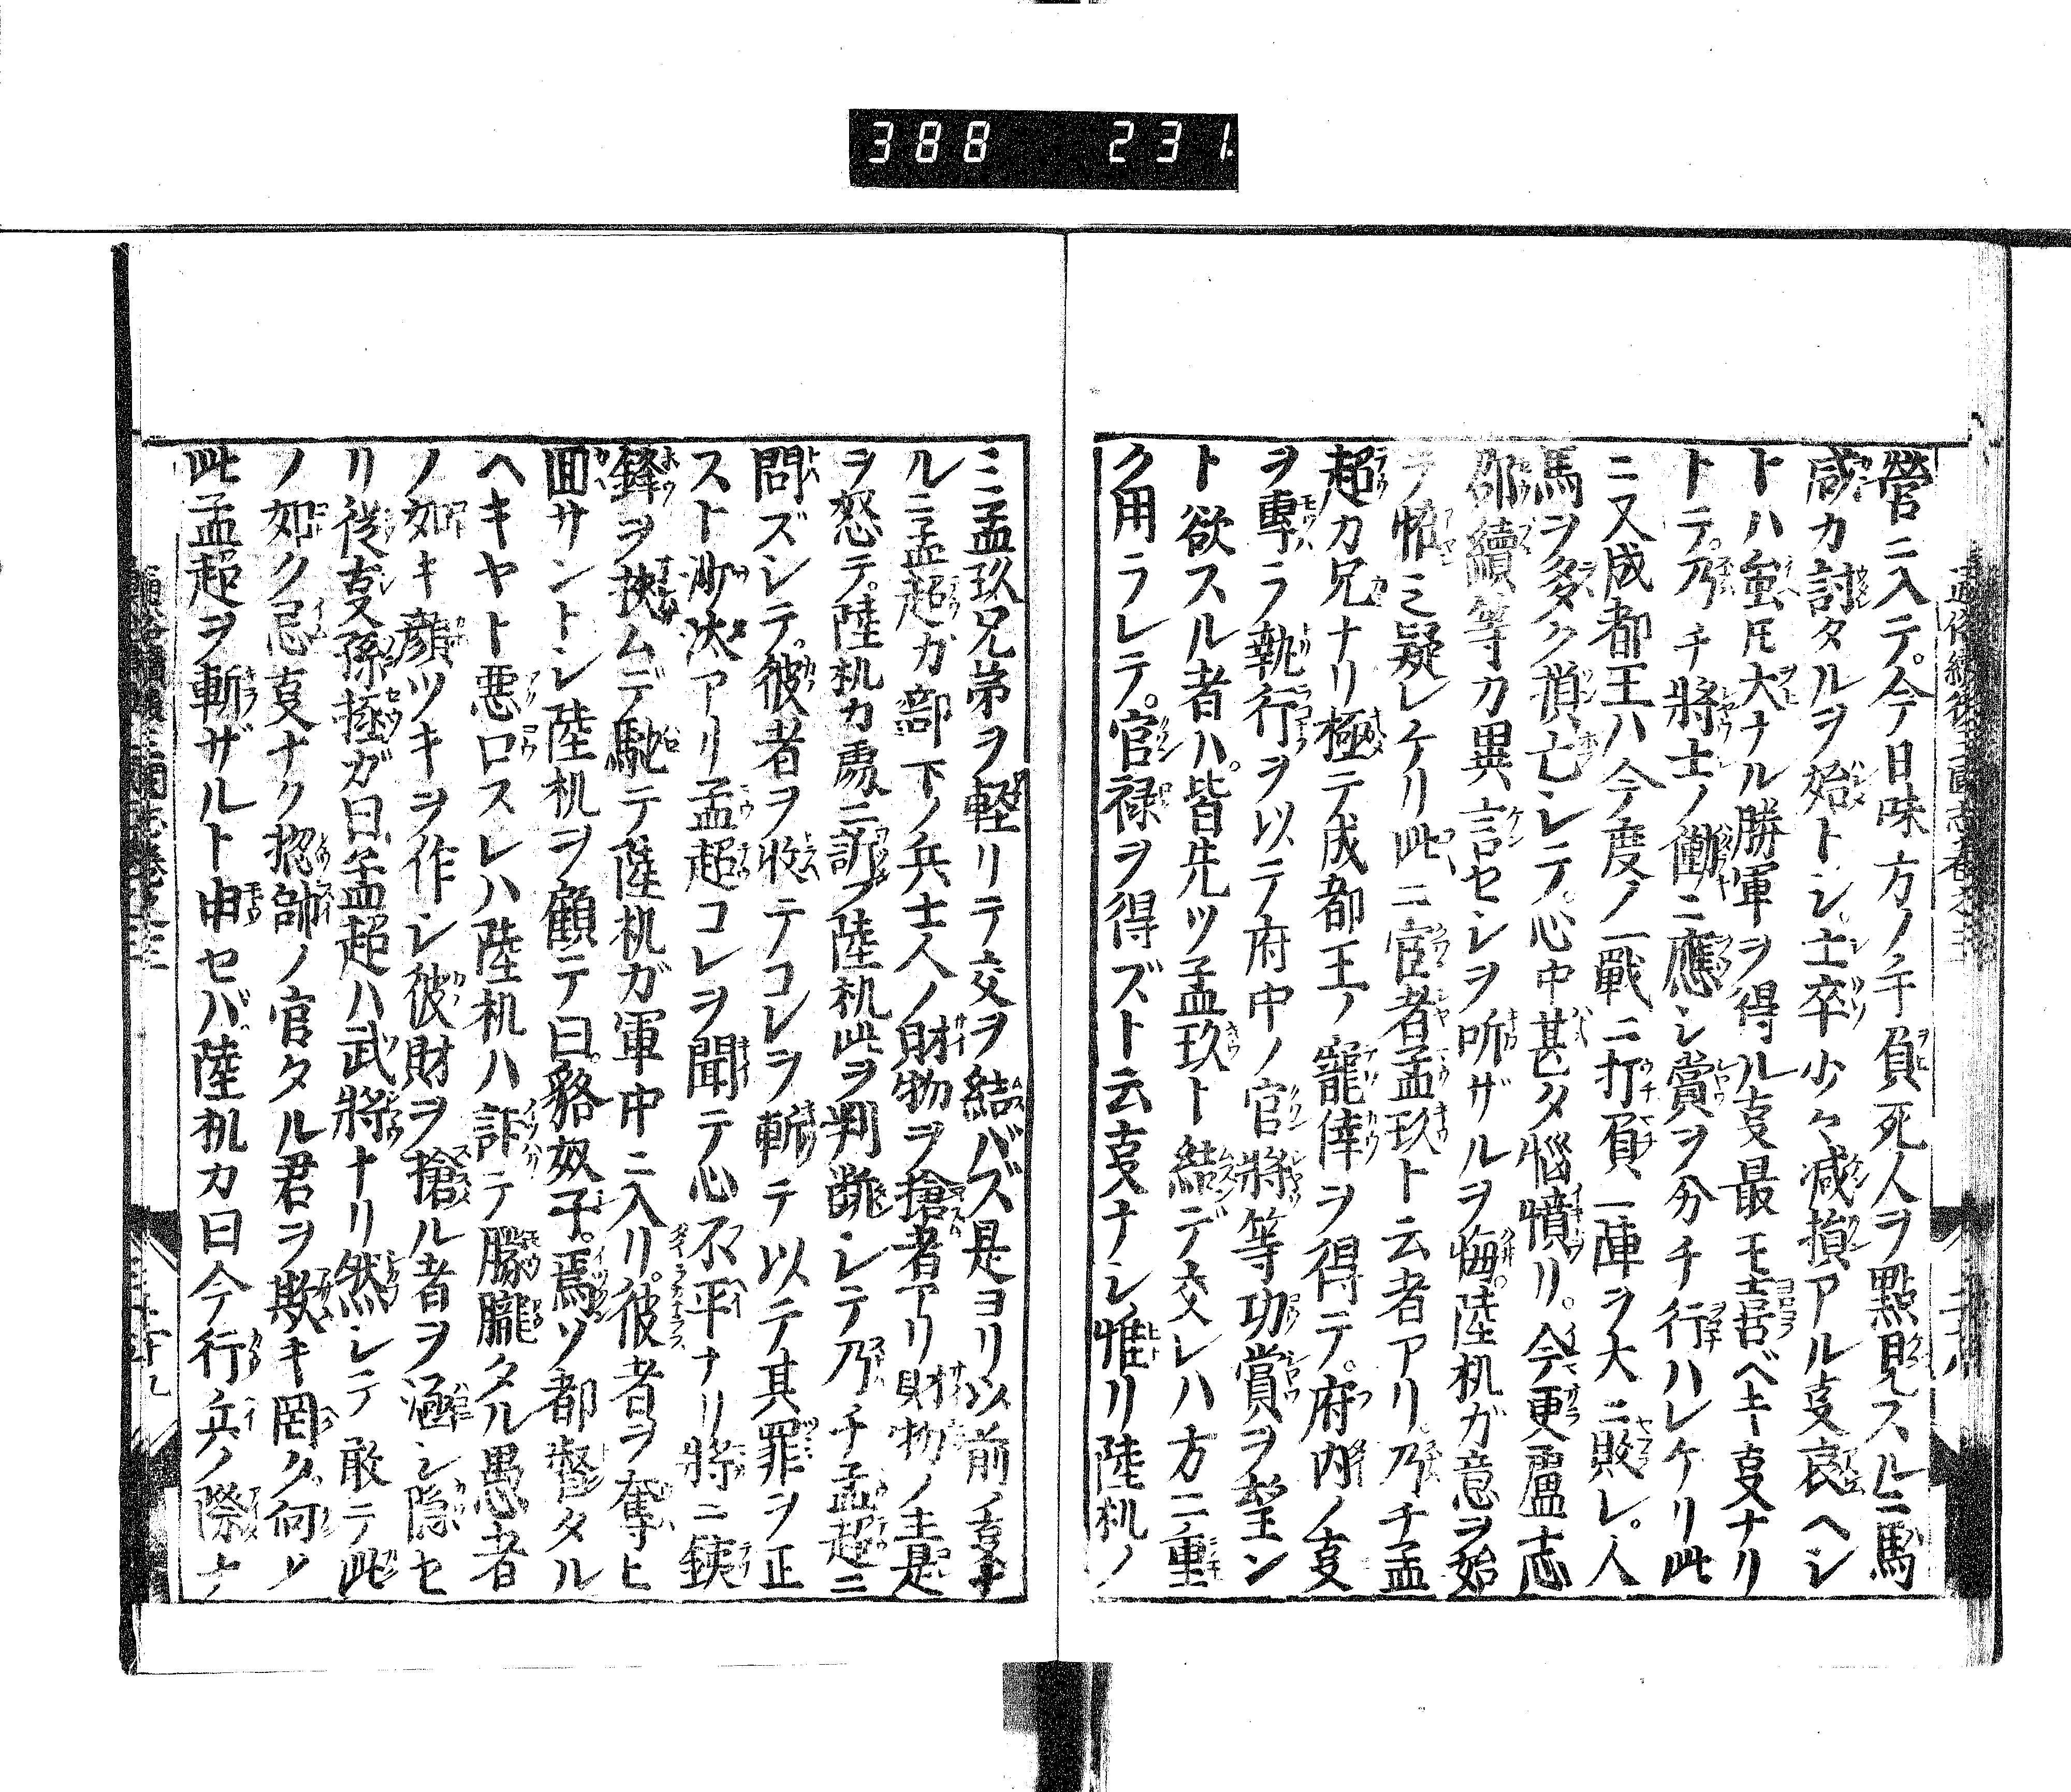 388 231
營ニ入テ。今日味方ノ手負死人ヲ點見スルニ馬
咸カ討タルヲ始トシ。士卒少々減損アル㕝哀ヘシ
トハ虽𪜈大ナル勝軍ヲ得ル㕝最モ喜ベキ㕝ナリ
トテ。乃チ將士ノ働ニ應シ賞ヲ分チ行ハレケリ此
ニ又成都王ハ今度ノ一戰ニ打負一陣ヲ大ニ敗レ。人
馬ヲ多ク損亡シテ。心中甚タ惱憤リ。今更盧志
邵續等カ異言セシヲ听ザルヲ悔。陸机ガ意ヲ始
テ恠ミ疑レケリ此ニ宦者孟玖ト云者アリ。乃チ孟
超カ兄ナリ極テ成都王ノ寵倖ヲ得テ。府内ノ㕝
ヲ專ラ執行ヲ以テ府中ノ官將等功賞ヲ望ン
ト欲スル者ハ。皆先ツ孟玖ト結デ交レハ方ニ重
ク用ラレテ。官禄ヲ得ズト云㕝ナシ惟リ陸机ノ
ミ孟玖兄弟ヲ軽リテ交ヲ結バズ是ヨリ以前ノ㕝
ルニ孟超ガ部下ノ兵士人ノ財物ヲ搶者アリ財物ノ主是
ヲ怒テ。陸机カ處ニ訴フ陸机此ヲ判斷シテ乃チ孟超ニ
問ズシテ。彼者ヲ收テコレヲ斬テ以テ其罪ヲ正
スト沙汰アリ孟超コレヲ聞テ心不平ナリ將ニ鉄
鋒ヲ挾ムデ馳テ陸机ガ軍中ニ入リ。彼者ヲ奪ヒ
回サントシ陸机ヲ顧テ曰。貉奴子。焉ソ都督タル
ヘキヤト悪口スレハ陸机ハ詐テ朦朧タル愚者
ノ如キ顔ツキヲ作シ彼財ヲ搶ル者ヲ涵シ隠セ
リ從㕝孫拯ガ曰。孟超ハ武將ナリ然シテ敢テ此
ノ如ク忌㕝ナク惣帥ノ官タル君ヲ欺キ罔ク。何ソ
此孟超ヲ斬ザルト申セバ陸机カ曰今行兵ノ際ナ